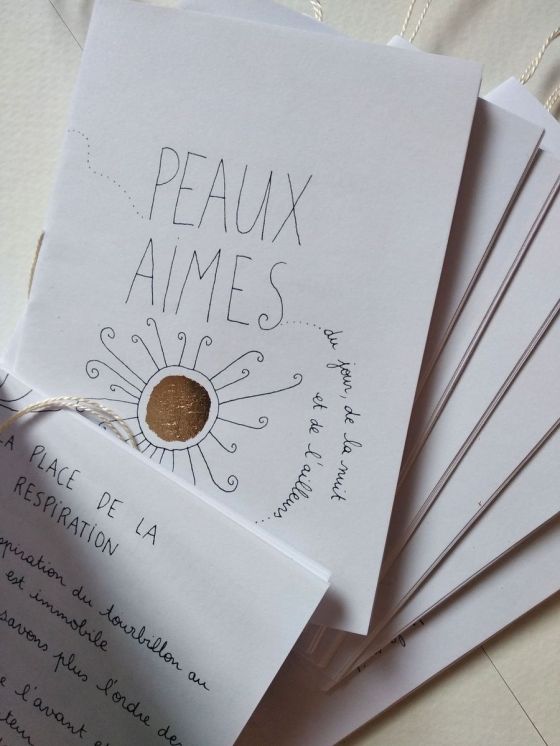 PEAUX
AIMES
du jour, de la nuit
et de l'ailleurs...
LA PLACE DE LA
RESPIRATION
du tourbillon au
est immobile
savons plus l'ordre des
l'avant